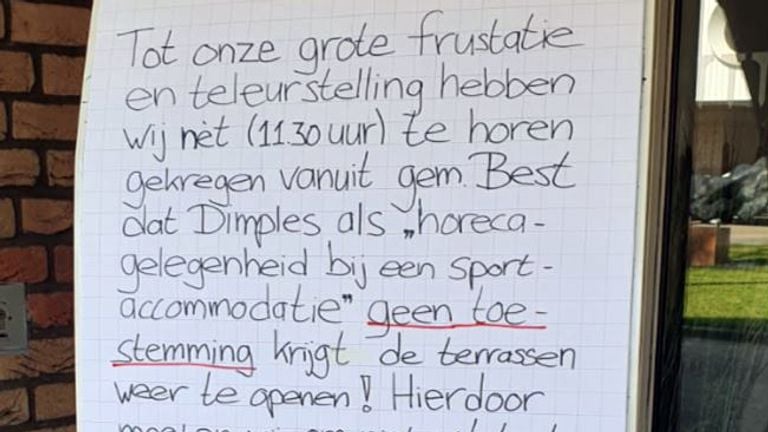 Tot onze grote frustatie
en teleurstelling hebben
wij nèt (11.30 uur) te horen
gekregen vanuit gem. Best
dat Dimples als „horeca-
gelegenheid bij een sport-
accommodatie” geen toe-
stemming krijgt de terrassen
weer te openen! Hierdoor